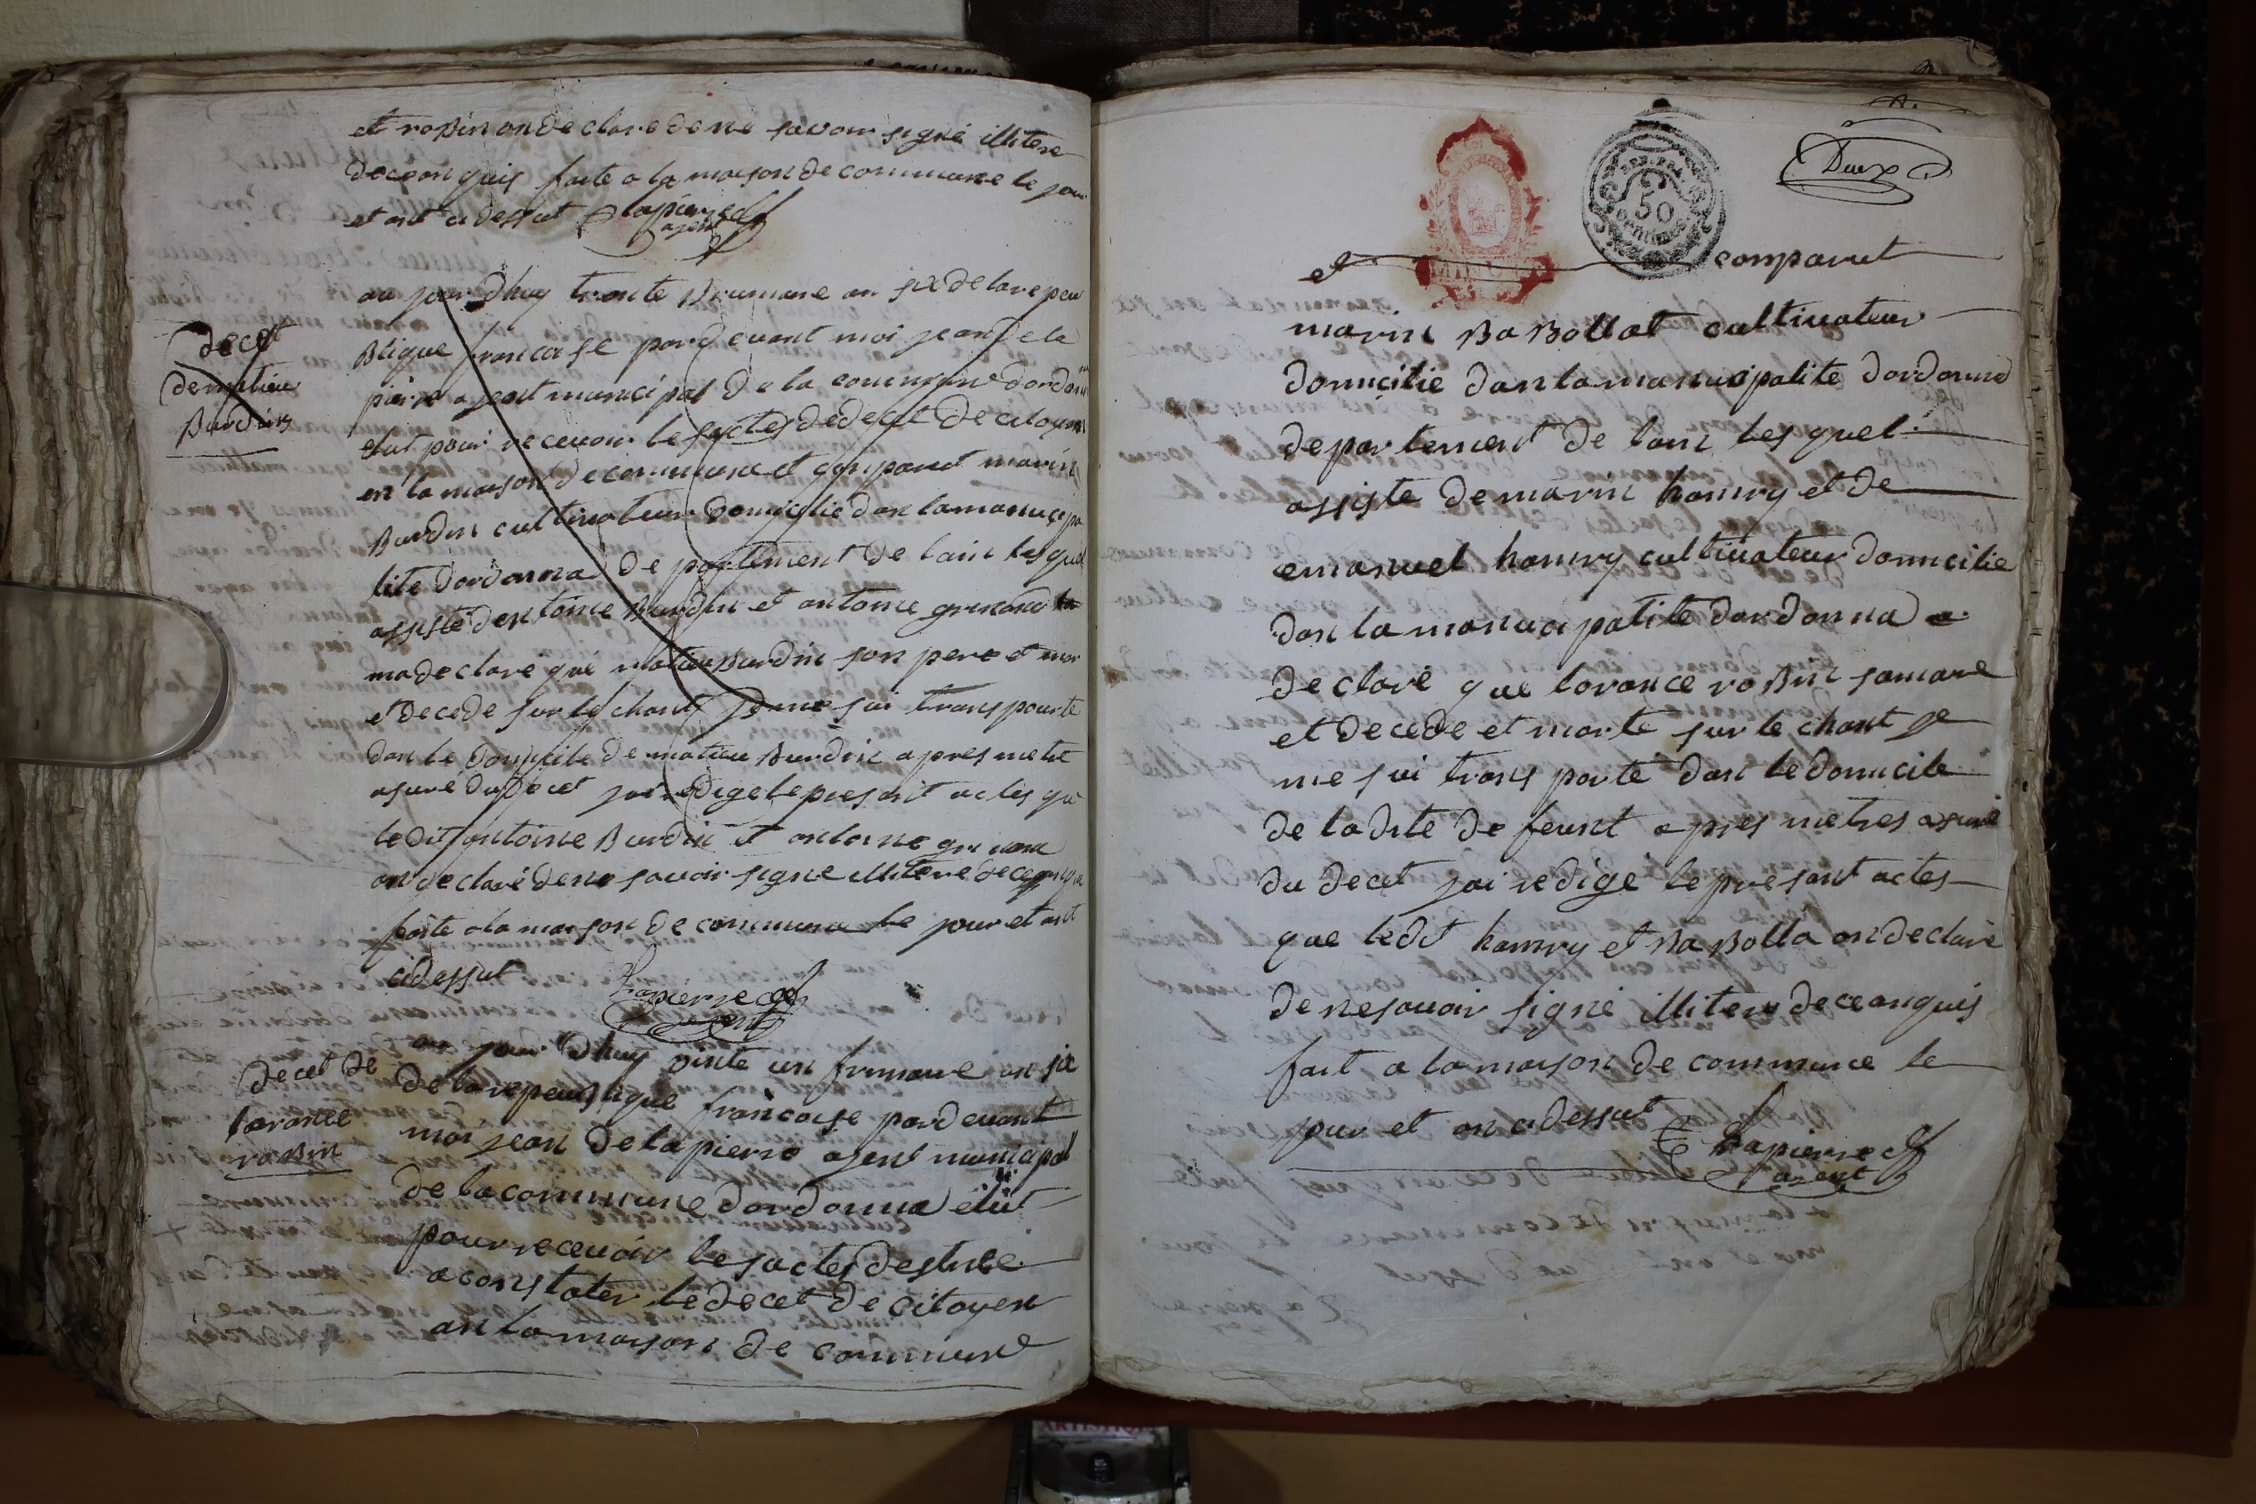 et roBin on declare dene savoir signé illitere
deceon quis faite a la maison de commune le jour
et ant ci dessut Lapierre
agent
au jour dhuy trante Brumaire an six de larepeu
Blique francaise pardevant moi jean dela
pierre agent municipal de la commune dordonna
elut pour recevoir le sactes dedecet de citoyens
en la maison de commune et comparut marin
Burdin cultivateur domicilie dan lamanucipa
lite dordonna de partement de lain lesquel
assiste dentoine Burdin et antoine grinand
ma declaré que matieu Burdin son pere et mor
et decede sur le chant je me sui transpourte
dan le domicile de matieu Burdin apres metre
asuré du decet jai redige le presant actes que
le dit antoine Burdin et antoine grinand
on declaré dene savoir signe illitere deceonquis
faite a la maison de commune le jour et ant
cidessut Lapierre
agent
decet
de matieu
Burdin
au jour dhuy vinte un frimaire an six
de larepeuBlique francaise pardevant
moi jean delapierre agent municipal
de la commune dordonna elut
pour recevoir le sactes destine
a constater le decet de citoyen
an la maison de commune
decet de
lorance
roBin
Deux
REP. FRA.
50
centimes
et comparut
marin BaBollat cultivateur
domicilie dan la manucipalite dordonna
departement de lain lesquel
assiste de marin hanvry et de
emanuel hanvry cultivateur domicilie
dan la manucipalite dordonna a
declaré que lorance roBin samare
et decede et morte sur le chant je
me sui trans porté dan le domicile
de ladite defeunt apres metres asuré
du decet jai redigé le presant actes
que ledit hanvry et BaBolla on declaré
denesavoir signé illitere deceonquis
fait a la maison de commune le
jour et an cidessut Lapierre
agent